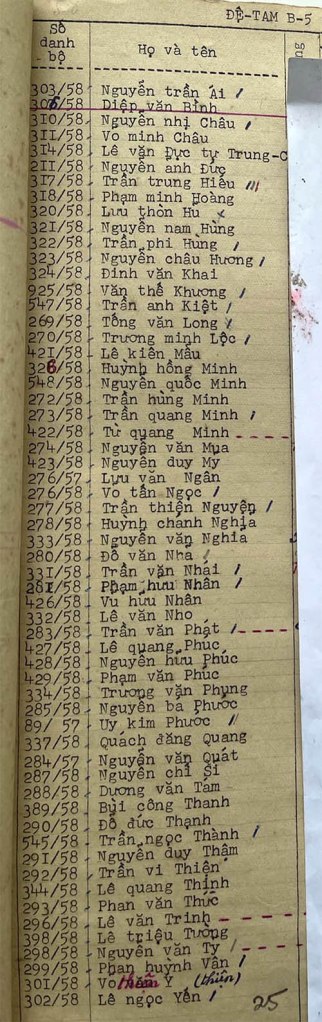 ĐỆ-TAM B-5
Số danh bộ Họ và tên
303/58 Nguyễn trần Ái /
306/58 Diệp văn Bỉnh
310/58 Nguyễn nhị Châu /
311/58 Vo minh Châu
314/58 Lê văn Dực tự Trung-C
211/58 Nguyễn anh Đức
317/58 Trần trung Hiếu ///
318/58 Phạm minh Hoàng
320/58 Lưu thòn Hu
321/58 Nguyễn nam Hùng
322/58 Trần phi Hùng /
323/58 Nguyễn châu Hương /
324/58 Đinh văn Khai
925/58 Văn thế Khương /
547/58 Trần anh Kiệt /
269/58 Tống văn Long /
270/58 Trương minh Lộc /
421/58 Lê kiến Mậu
326/58 Huỳnh hồng Minh
548/58 Nguyễn quốc Minh
272/58 Trần hùng Minh
273/58 Trần quang Minh /
422/58 Từ quang Minh
274/58 Nguyễn văn Mua
423/58 Nguyễn duy My
276/57 Lưu văn Ngân
276/58 Vo tấn Ngọc /
277/58 Trần thiện Nguyện /
278/58 Huỳnh chanh Nghĩa
333/58 Nguyễn văn Nghĩa
280/58 Đỗ văn Nhã /
331/58 Trần văn Nhai /
281/58 Phạm hưu Nhân /
426/58 Vu hưu Nhân
332/58 Lê văn Nho
283/58 Trần văn Phát /
427/58 Lê quang Phuc
428/58 Nguyễn hưu Phúc
429/58 Phạm văn Phúc
334/58 Trương văn Phụng
285/58 Nguyễn ba Phước
89/ 57 Uy kim Phước //
337/58 Quách đăng Quang
284/57 Nguyễn văn Quát
287/58 Nguyễn chí Si
288/58 Dương văn Tam
389/58 Bùi công Thanh
290/58 Đỗ đức Thạnh
545/58 Trần ngọc Thành /
291/58 Nguyễn duy Thâm
292/58 Trần vi Thiện
344/58 Lê quang Thịnh
293/58 Phan văn Thức
296/58 Lê văn Trinh
398/58 Lê triệu Tường
298/58 Nguyễn văn Ty /
299/58 Phan huỳnh Vân /
301/58 Vo Y (thiên)
302/58 Lê ngọc Yến /
25